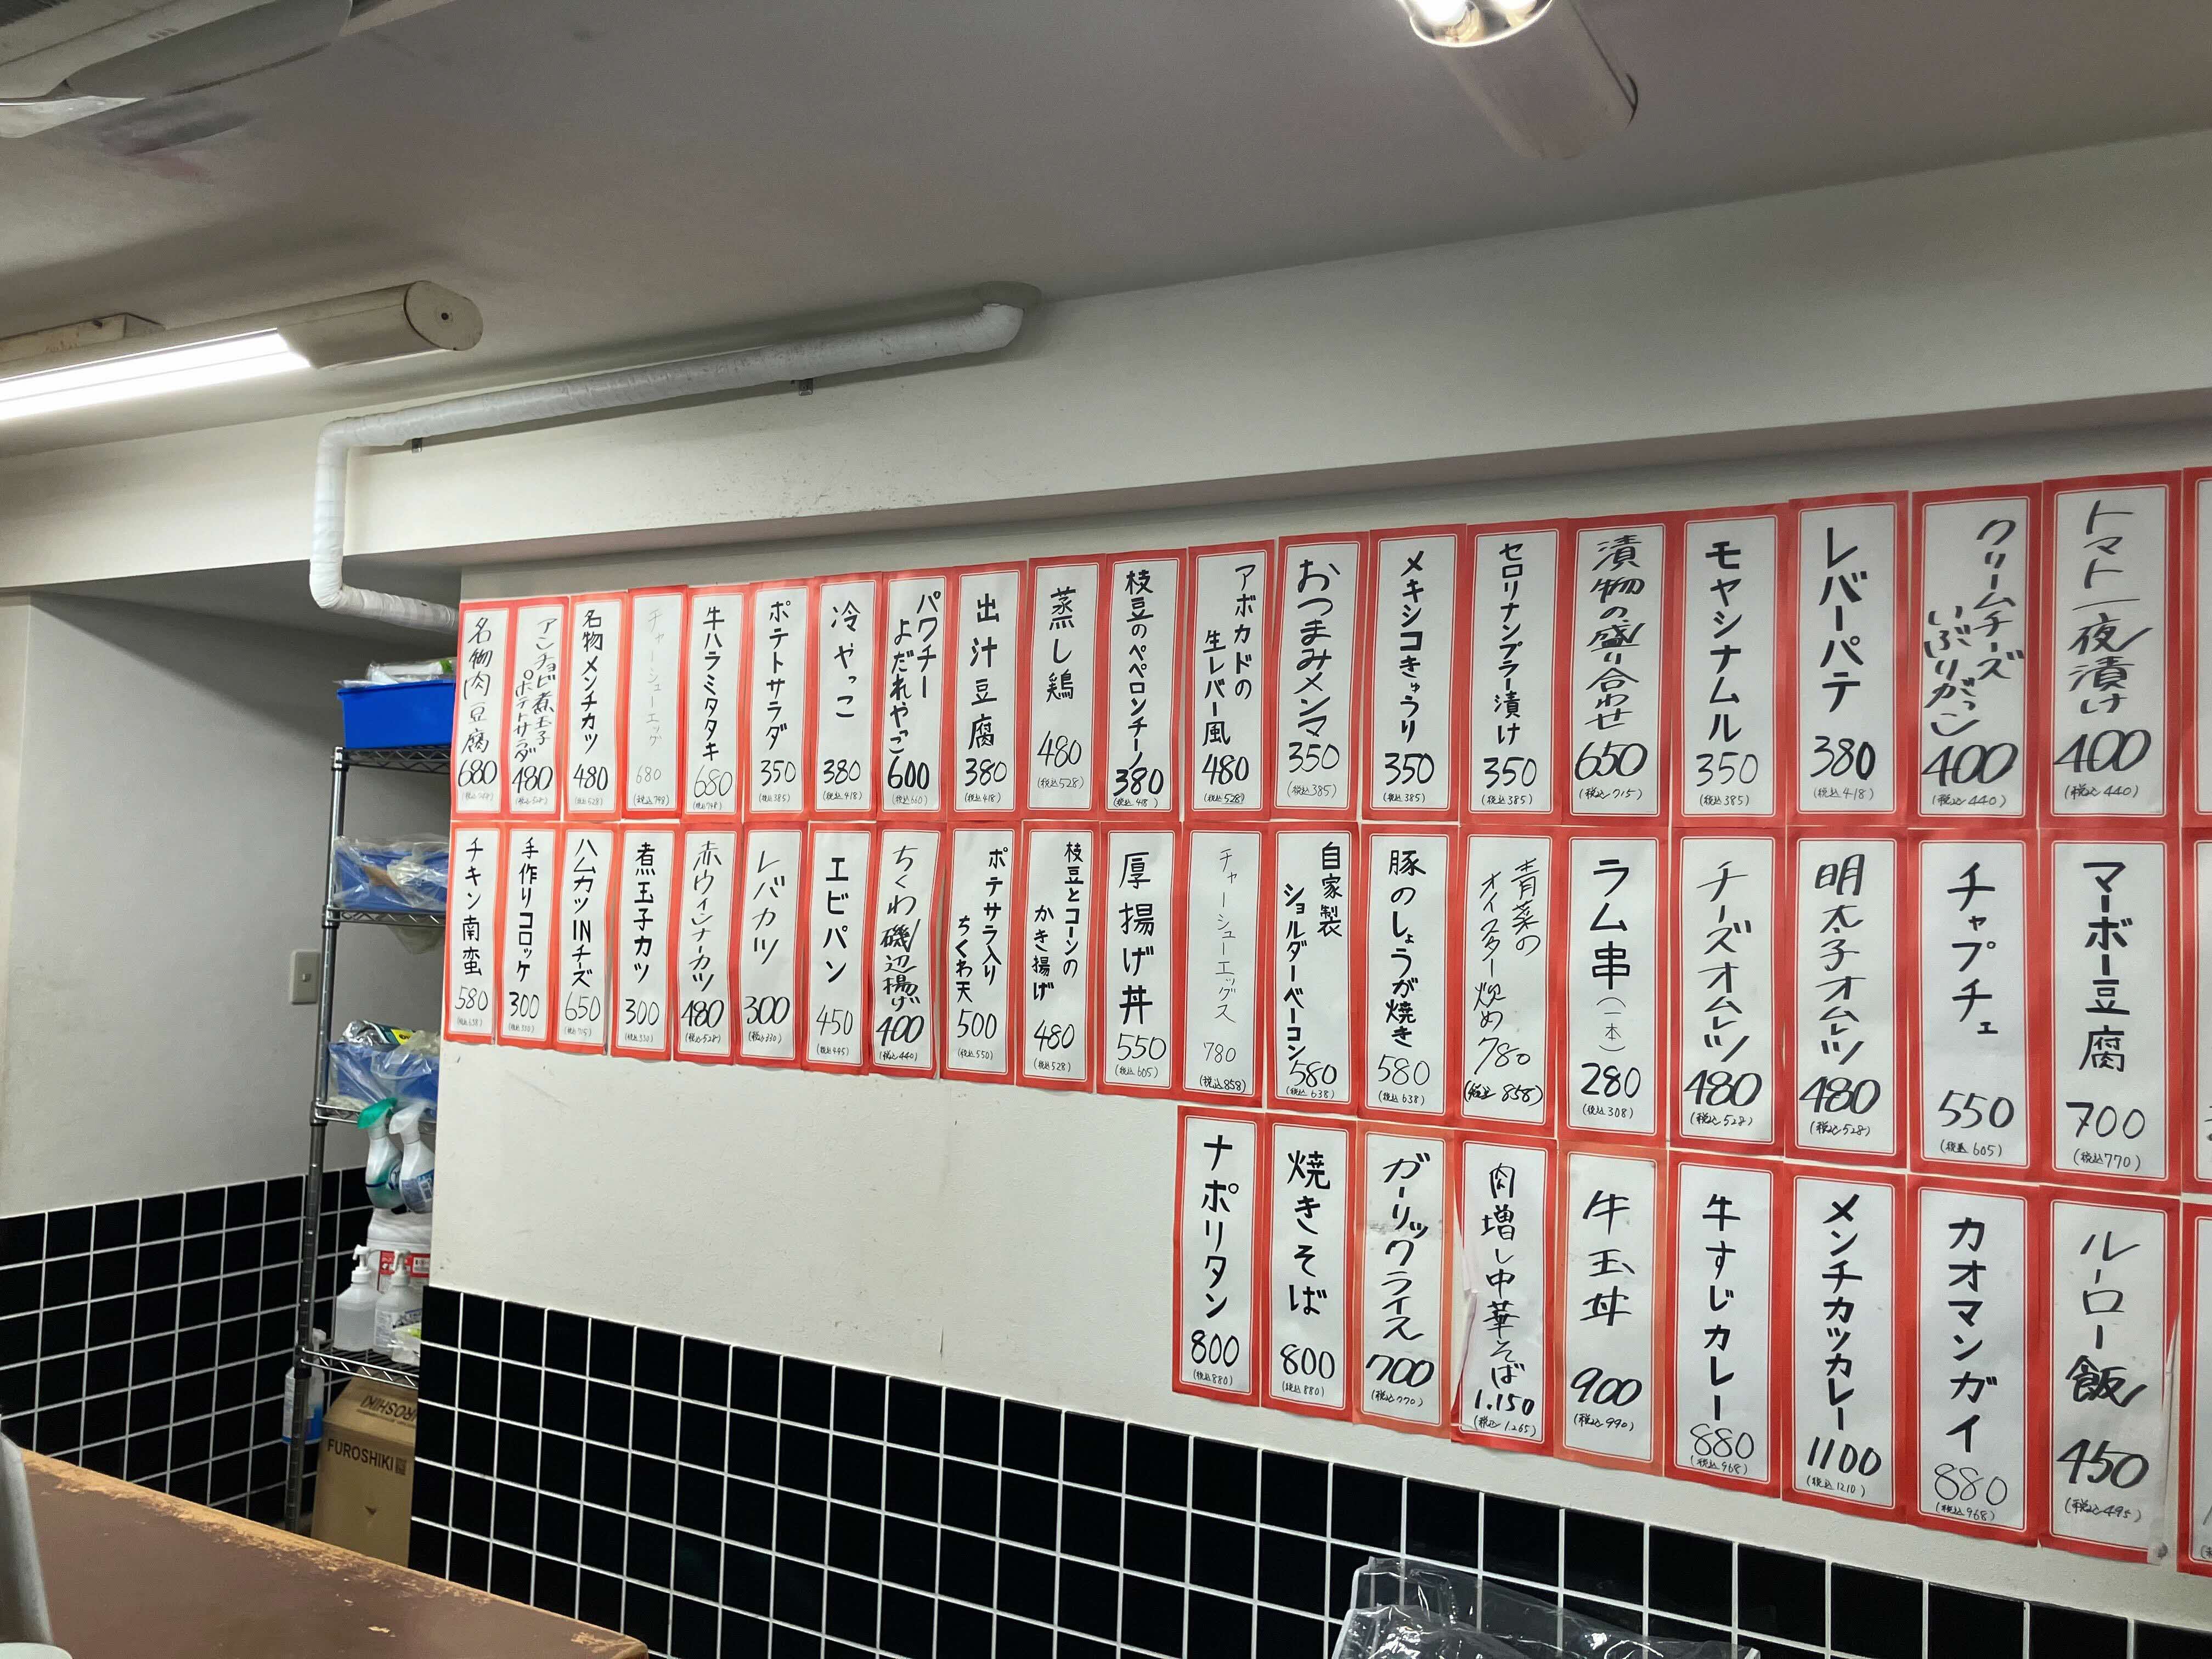 トマト一夜漬け
400
(税込440)
クリームチーズ
いぶりがっこ
400
(税込440)
レバーパテ
380
(税込418)
モヤシナムル
350
(税込385)
漬物の盛り合わせ
650
(税込715)
セロリナンプラー漬け
350
(税込385)
メキシコきゅうり
350
(税込385)
おつまみメンマ
350
(税込385)
アボカドの
生レバー風
480
(税込528)
枝豆のペペロンチーノ
380
(税込418)
蒸し鶏
480
(税込528)
出汁豆腐
380
(税込418)
パクチー
よだれやっこ
600
冷やっこ
380
(税込418)
ポテトサラダ
350
(税込385)
牛ハラミタタキ
680
(税込748)
チャーシューエッグ
680
(税込748)
名物メンチカツ
480
(税込528)
アンチョビ煮玉子
ポテトサラダ
480
(税込528)
名物肉豆腐
680
(税込748)
マーボー豆腐
700
(税込770)
チャプチェ
550
(税込605)
明太子オムレツ
480
(税込528)
チーズオムレツ
480
(税込528)
ラム串(一本)
280
(税込308)
青菜の
オイスター炒め
780
(税込858)
豚のしょうが焼き
580
(税込638)
自家製
ショルダーベーコン
580
(税込638)
チャーシューエッグス
780
(税込858)
厚揚げ丼
550
(税込605)
枝豆とコーンの
かき揚げ
480
(税込528)
ポテサラ入り
ちくわ天
500
(税込550)
ちくわ磯辺揚げ
400
(税込440)
エビパン
450
(税込495)
レバカツ
300
(税込330)
赤ウィンナーカツ
480
(税込528)
煮玉子カツ
300
(税込330)
ハムカツINチーズ
650
(税込715)
手作りコロッケ
300
(税込330)
チキン南蛮
580
(税込638)
ルーロー飯
450
(税込495)
カオマンガイ
880
(税込968)
メンチカツカレー
1100
(税込1210)
牛すじカレー
880
(税込968)
牛玉丼
900
(税込990)
肉増し中華そば
1.150
(税込1.265)
ガーリックライス
700
(税込770)
焼きそば
800
(税込880)
ナポリタン
800
(税込880)
FUROSHIKI